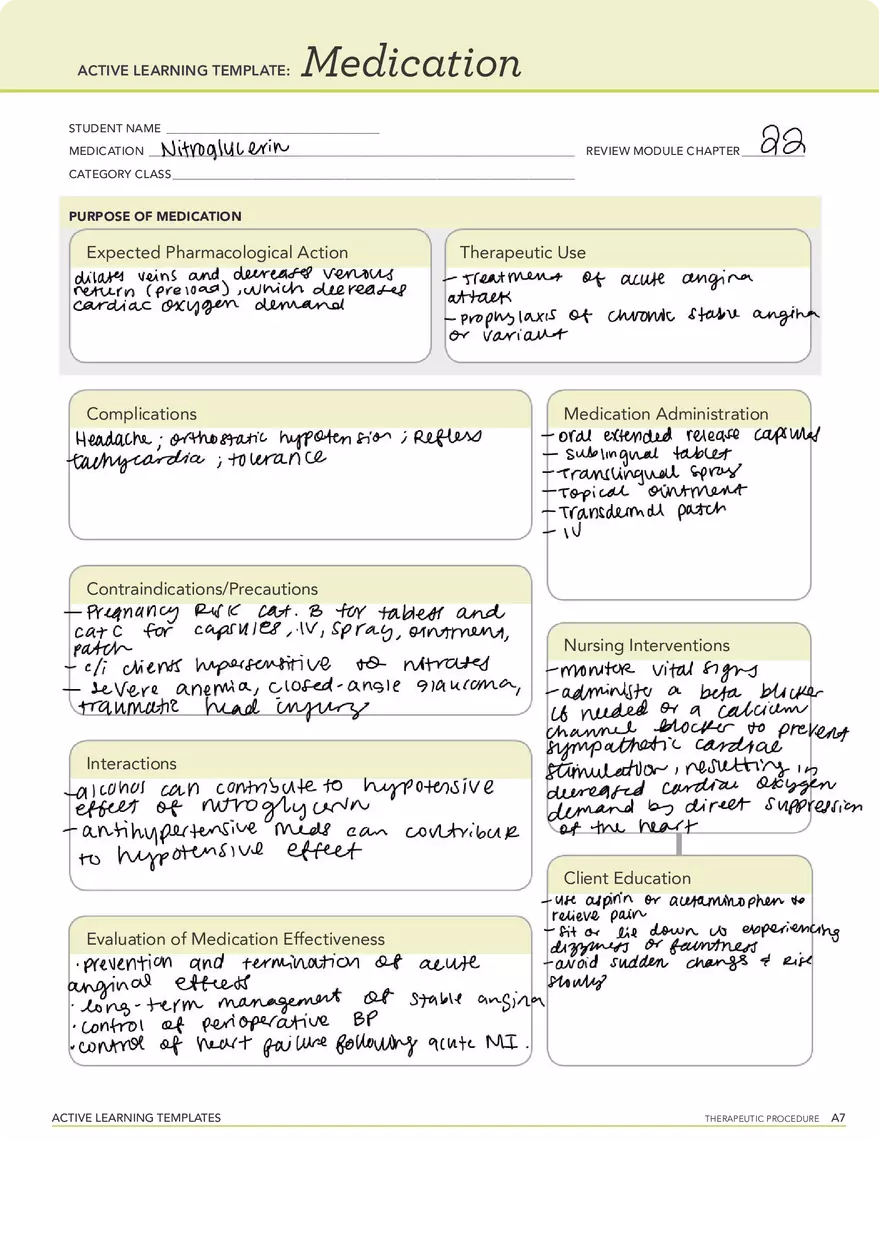 ACTIVE LEARNING TEMPLATE: Medication
STUDENT NAME
MEDICATION Nitroglycerin
REVIEW MODULE CHAPTER 22
CATEGORY CLASS
PURPOSE OF MEDICATION
Expected Pharmacological Action
dilates veins and decreases venous
return (preload), which decreases
cardiac oxygen demand
Therapeutic Use
- Treatment of acute angina
attack
- Prophylaxis of chronic stable angina
or variant
Complications
Headache; orthostatic hypotension; Refless
tachycardia; tolerance
Medication Administration
- oral extended release capsules
- sublingual tablet
- Translingual spray
- Topical ointment
- Transdermal patch
- IV
Contraindications/Precautions
- Pregnancy Risk cat. B for tablets and
cat C for capsules, IV, spray, ointment,
patch
- c/i clients hypersensitive to nitrates
- severe anemia, closed-angle glaucoma,
traumatic head injury
Nursing Interventions
- monitor vital signs
- administer a beta blocker
if needed or a calcium
channel blocker to prevent
sympathetic cardiac
stimulation, resulting in
decreased cardiac oxygen
demand by direct suppression
of the heart
Interactions
- alcohol can contribute to hypotensive
effect of nitroglycerin
- antihypertensive meds can contribute
to hypotensive effect
Client Education
- use aspirin or acetaminophen to
relieve pain
- sit or lie down if experiencing
dizzyness or faintness
- avoid sudden changs & rise
slowly
Evaluation of Medication Effectiveness
· prevention and termination of acute
anginal effects
· long-term management of stable angina
· control of perioperative BP
· control of heart failure following acute MI.
ACTIVE LEARNING TEMPLATES
THERAPEUTIC PROCEDURE A7